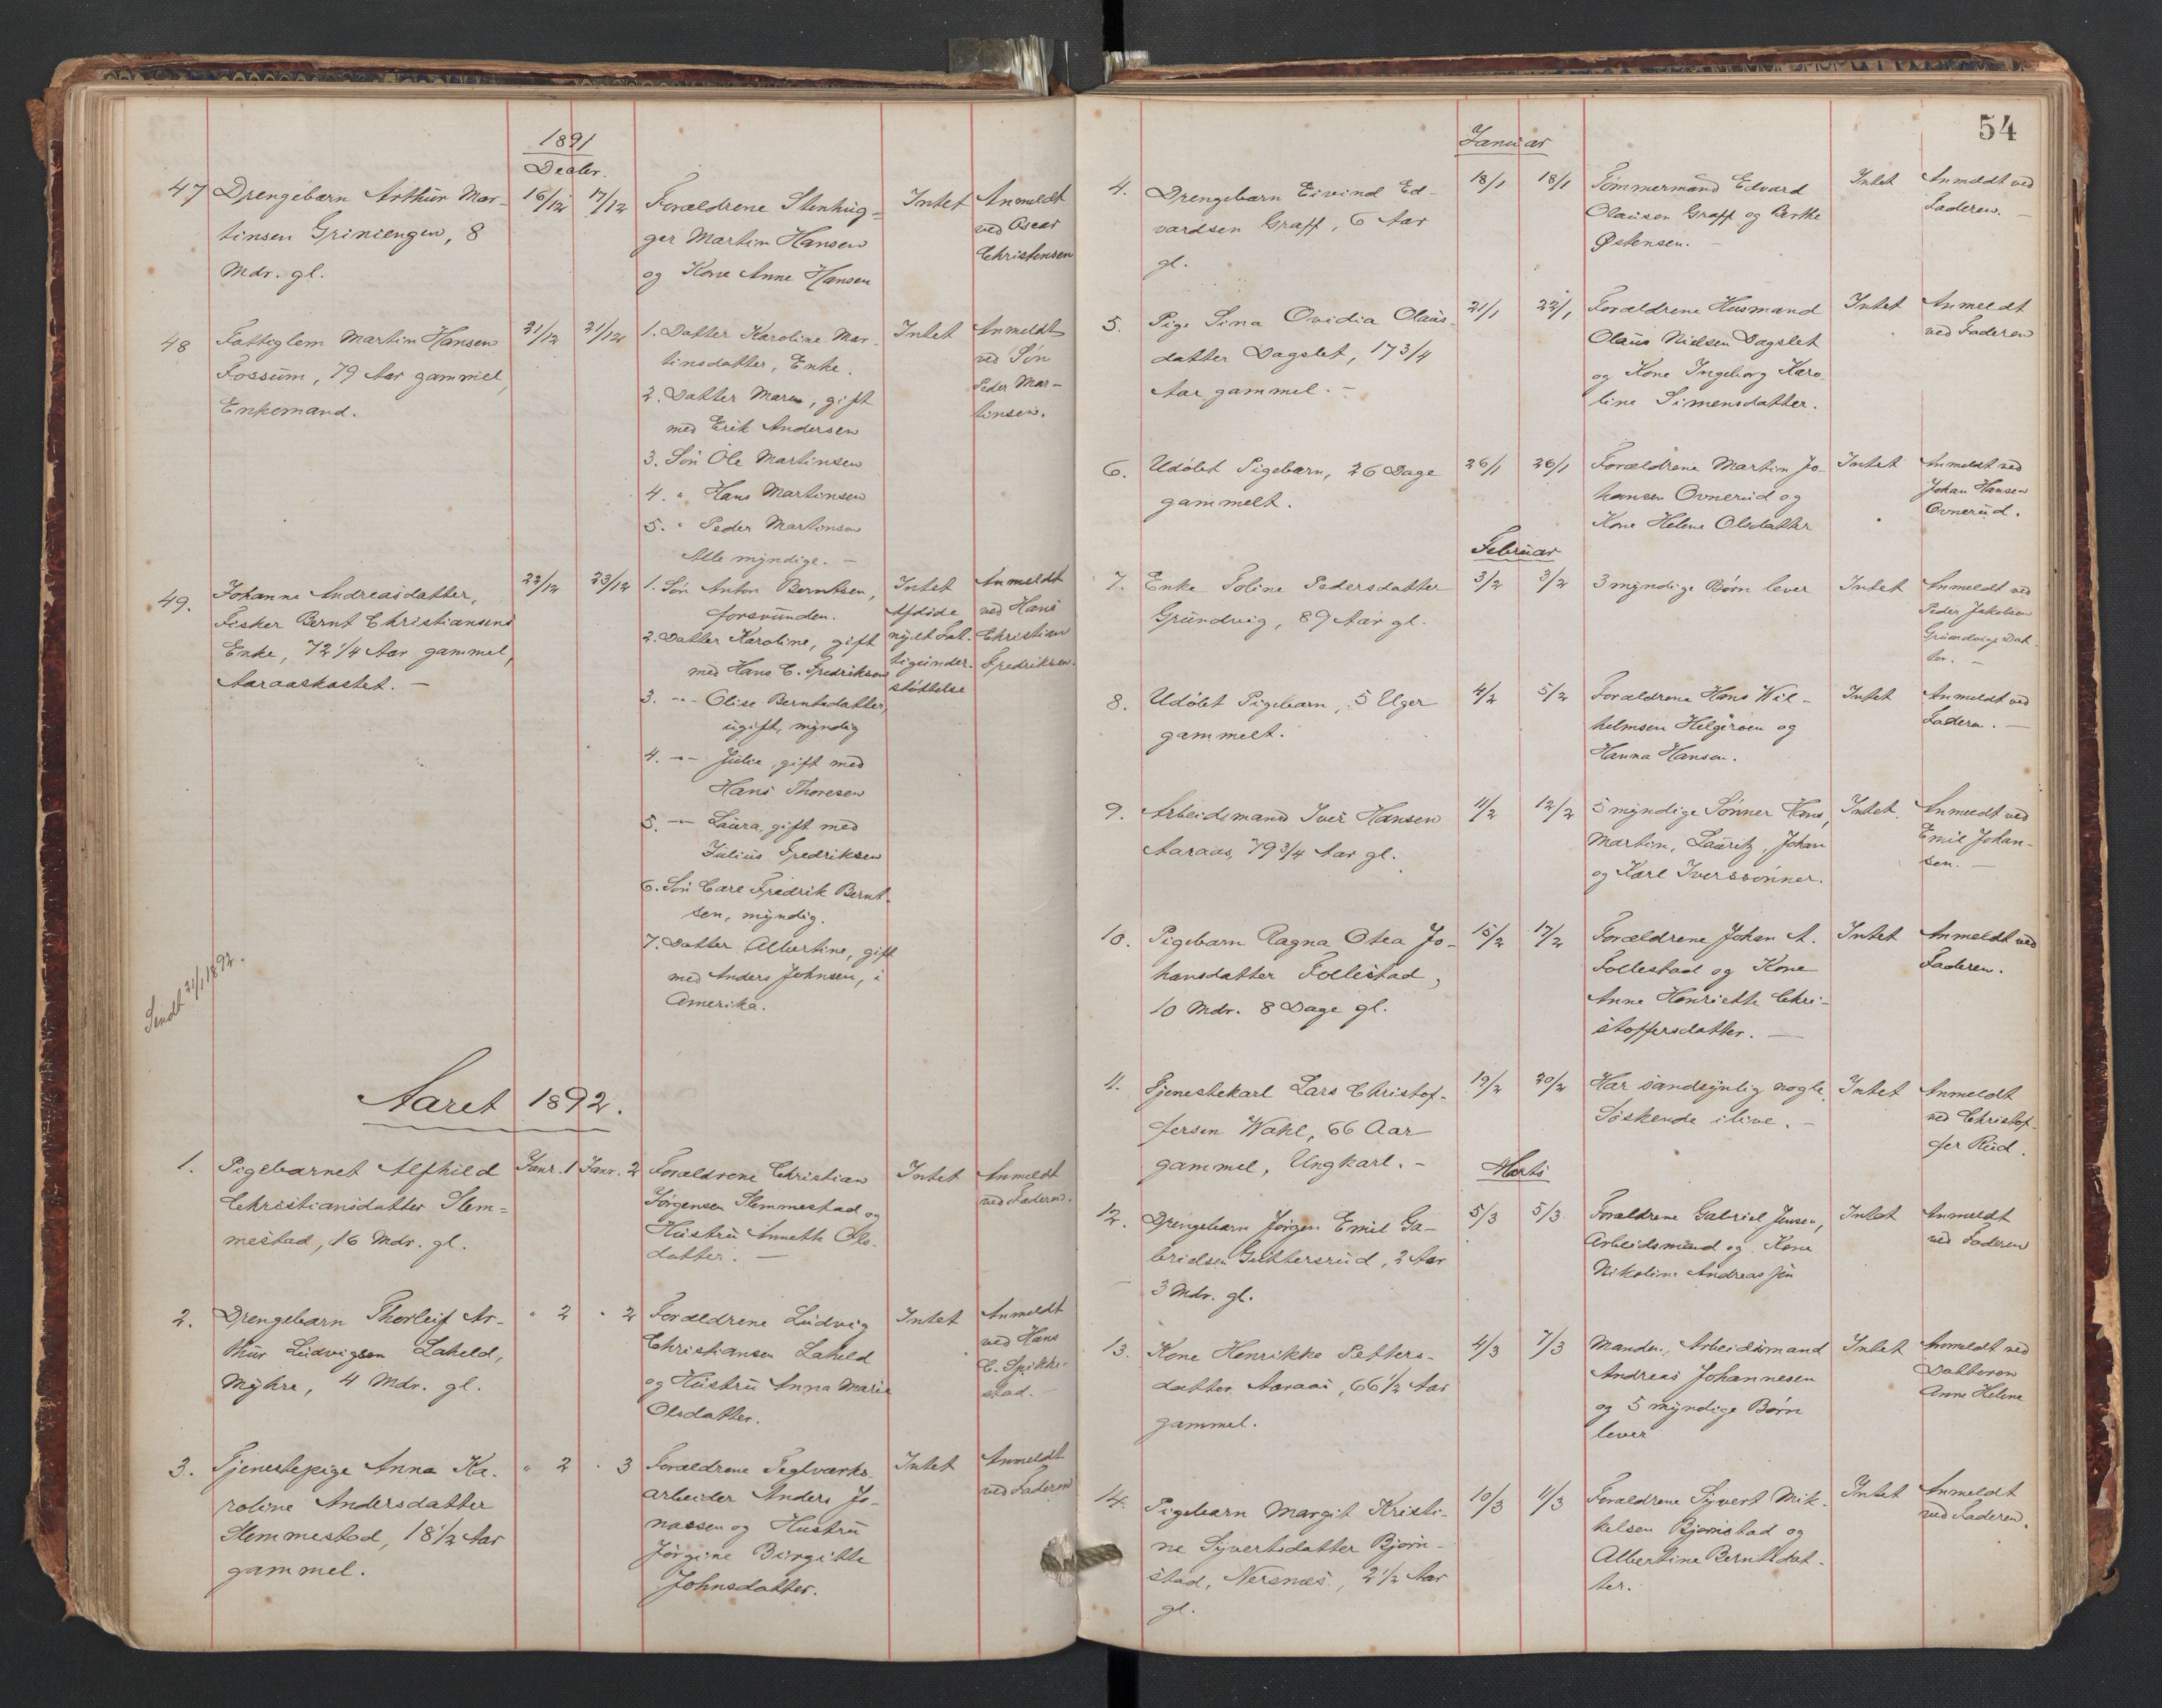 1891
Decbr.
47 Drengebarn Arthur Mar-
tinsen Griniengen, 8
Mdr. gl.
16/12 17/12
Forældrene Stenhug-
ger Martin Hansen
og Kone Anne Hansen
Intet
Anmeldt
ved Oscar
Christensen
48 Fattiglem Martin Hansen
Fossum, 79 Aar gammel,
Enkemand.
21/12 21/12
1. Datter Karoline Mar-
tinsdatter, Enke.
2. Datter Maren, gift
med Erik Andersen
3. Søn Ole Martinsen
4. " Hans Martinsen
5. " Peder Martinsen
Alle myndige. –
Intet
Anmeldt
ved Søn
Peder Mar-
tinsen.
49. Johanne Andreasdatter,
Fisker Bernt Christiansens
Enke, 72 1/4 Aar gammel,
Aaraaskastet. –
22/12 23/12
1. Søn Anton Berntsen,
forsvunden.
2. Datter Karoline, gift
med Hans C. Fredriksen
3. -"- Olise Berntsdatter,
ugift, myndig
4. -"- Julie, gift med
Hans Thoresen
5. -"- Laura, gift med
Julius Fredriksen
6. Søn Carl Fredrik Bernt-
sen, myndig.
7. Datter Albertine, gift
med Anders Johnsen, i
Amerika.
Intet
Afdøde
nydt Fat-
tigunder-
støttelse
Anmeldt
ved Hans
Christian
Fredriksen.
Sendt 21/1 1892.
Aaret 1892.
1. Pigebarnet Alfhild
Christiansdatter Slem-
mestad, 16 Mdr. gl.
Janr. 1 Janr. 2
Forældrene Christian
Jørgensen Slemmestad og
Hustru Annette Ols-
datter. –
Intet
Anmeldt
ved Faderen.
2. Drengebarn Thorleif Ar-
thur Ludvigsen Laheld,
Myhre, 4 Mdr. gl.
" 2 " 2
Forældrene Ludvig
Christiansen Laheld
og Hustru Anna Marie
Olsdatter.
Intet
Anmeldt
ved Hans
C. Spikke-
stad. –
3. Tjenestepige Anna Ka-
roline Andersdatter
Slemmestad, 18 1/2 Aar
gammel.
" 2 " 3
Forældrene Teglværks-
arbeider Anders Jo-
nassen og Hustru
Jørgine Birgitte
Johnsdatter.
Intet
Anmeldt
ved Faderen
54
Januar
4. Drengebarn Eivind Ed-
vardsen Graff, 6 Aar
gl.
18/1 18/1
Tømmermand Edvard
Olausen Graff og Berthe
Østensen. –
Intet
Anmeldt ved
Faderen. –
5. Pige Sina Ovidia Olaus-
datter Dagslet, 17 3/4
Aar gammel. –
21/1 22/1
Forældrene Husmand
Olaus Nielsen Dagslet
og Kone Ingeborg Karo-
line Simensdatter.
Intet
Anmeldt
ved Faderen
6. Udøbt Pigebarn, 26 Dage
gammelt.
26/1 26/1
Forældrene Martin Jo-
hansen Ovnerud og
Kone Helene Olsdatter
Intet
Anmeldt ved
Johan Hansen
Ovnerud.
Februar
7. Enke Toline Pedersdatter
Grundvig, 89 Aar gl.
3/2 3/2
3 myndige Børn lever
Intet
Anmeldt ved
Peder Jakobsen
Grundvigs Dat-
ter. –
8. Udøbt Pigebarn, 5 Uger
gammelt.
4/2 5/2
Forældrene Hans Wil-
helmsen Helgeroen og
Hanna Hansen.
Intet
Anmeldt ved
Faderen. –
9. Arbeidsmand Iver Hansen
Aaraas, 79 3/4 Aar gl.
11/2 12/2
5 myndige Sønner Hans,
Martin, Lauritz, Johan
og Karl Iverssønner.
Intet.
Anmeldt ved
Emil Johan-
sen. –
10. Pigebarn Ragna Otea Jo-
hansdatter Follestad,
10 Mdr. 8 Dage gl.
15/2 17/2
Forældrene Johan A.
Follestad og Kone
Anne Henriette Chri-
stoffersdatter. –
Intet
Anmeldt ved
Faderen.
11. Tjenestekarl Lars Christof-
fersen Wahl, 66 Aar
gammel, Ungkarl. –
19/2 20/2
Har sandsynlig nogle
Søskende ilive. –
Intet
Anmeldt
ved Christof-
fer Rud.
Marts
12. Drengebarn Jørgen Emil Ga-
brielsen Guttersrud, 2 Aar
3 Mdr. gl.
5/3 5/3
Forældrene Gabriel Jensen,
Arbeidsmand og Kone
Nikoline Andreas
Intet
Anmeldt
ved Faderen
13. Kone Henrikke Petters-
datter Aaraas, 66 1/2 Aar
gammel.
4/3 7/3
Manden, Arbeidsmand
Andreas Johannesen
og 5 myndige Børn
lever
Intet
Anmeldt ved
Datteren
Anne Helene
14. Pigebarn Margit Kristi-
ne Syvertsdatter Bjørn-
stad, Nersnæs, 2 1/2 Aar
gl.
10/3 11/3
Forældrene Syvert Mik-
kelsen Bjørnstad og
Albertine Berntsdat-
ter.
Intet
Anmeldt
ved Faderen.